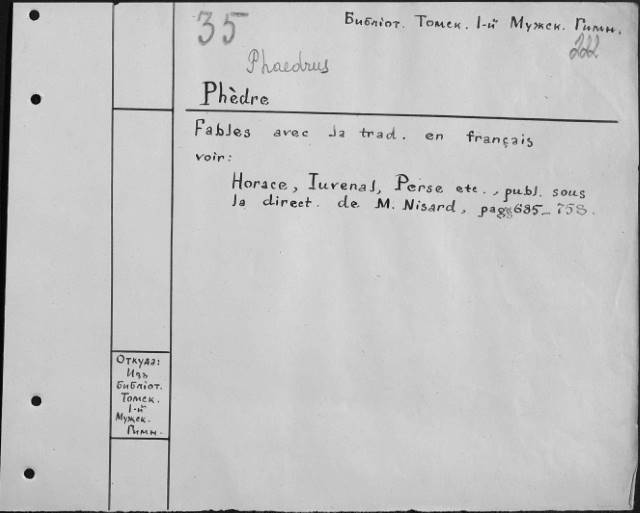 35
Библіот. Томск. 1-й Мужск. Гимн.
222
Phaedrus
Phèdre
Fables avec la trad. en français
voir:
Horace, Iuvenal, Perse etc., publ. sous
la direct. de M. Nisard, pag 685-758.
Откуда:
Изъ
Библіот.
Томск.
1-й
Мужск.
Гимн.